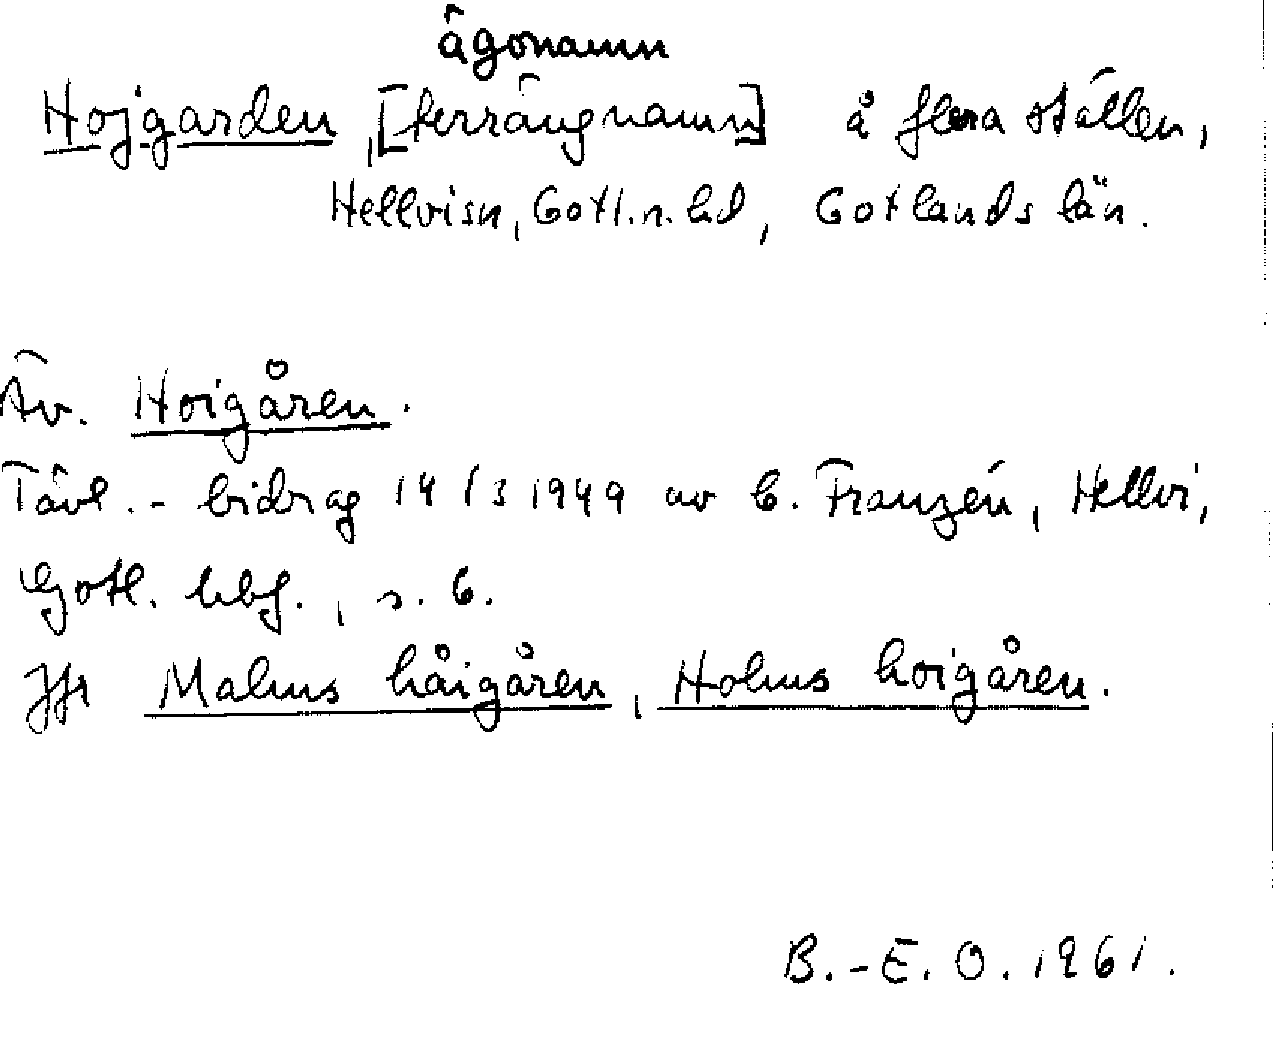 ägonamn
Hojgarden, [terrängnamn] å flera ställen,
Hellvi sn, Gotl. n. hd, Gotlands län.
Äv. Hoigåren.
Tävl.-bidrag 14/3 1949 av G. Franzén, Hellvi,
Gotl. hbf., s. 6.
Jfr Malms håigåren, Holms hoigåren.
B.-E. O. 1961.